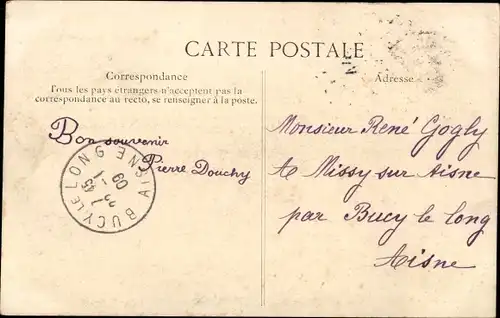 CARTE POSTALE
Correspondance
Tous les pays étrangers n'acceptent pas la
correspondance au recto, se renseigner à la poste.
Adresse
Bon souvenir
Pierre Douchy
BUCY LE LONG AISNE
09
Monsieur René Gogly
A Missy sur Aisne
par Bucy le long
Aisne